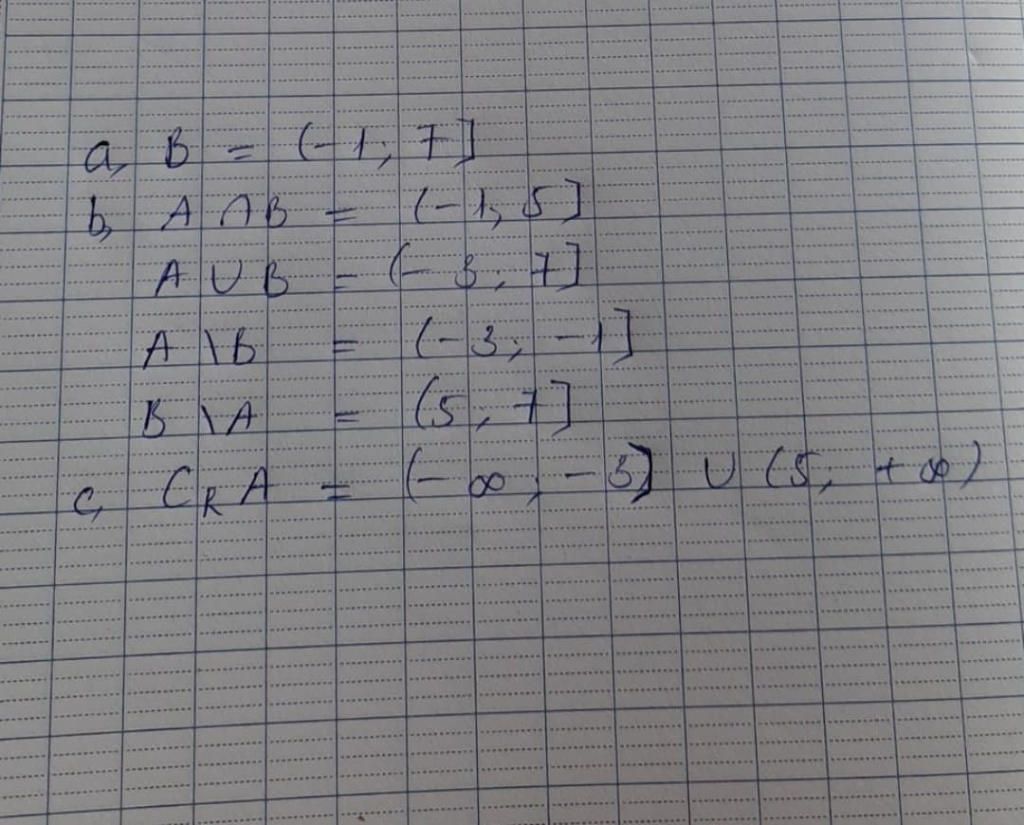 a, B = (-1; 7]
b, A ∩ B = (-1; 5]
A ∪ B = (-3; 7]
A \ B = (-3; -1]
B \ A = (5; 7]
c, C_R A = (-∞; -3] ∪ (5; +∞)